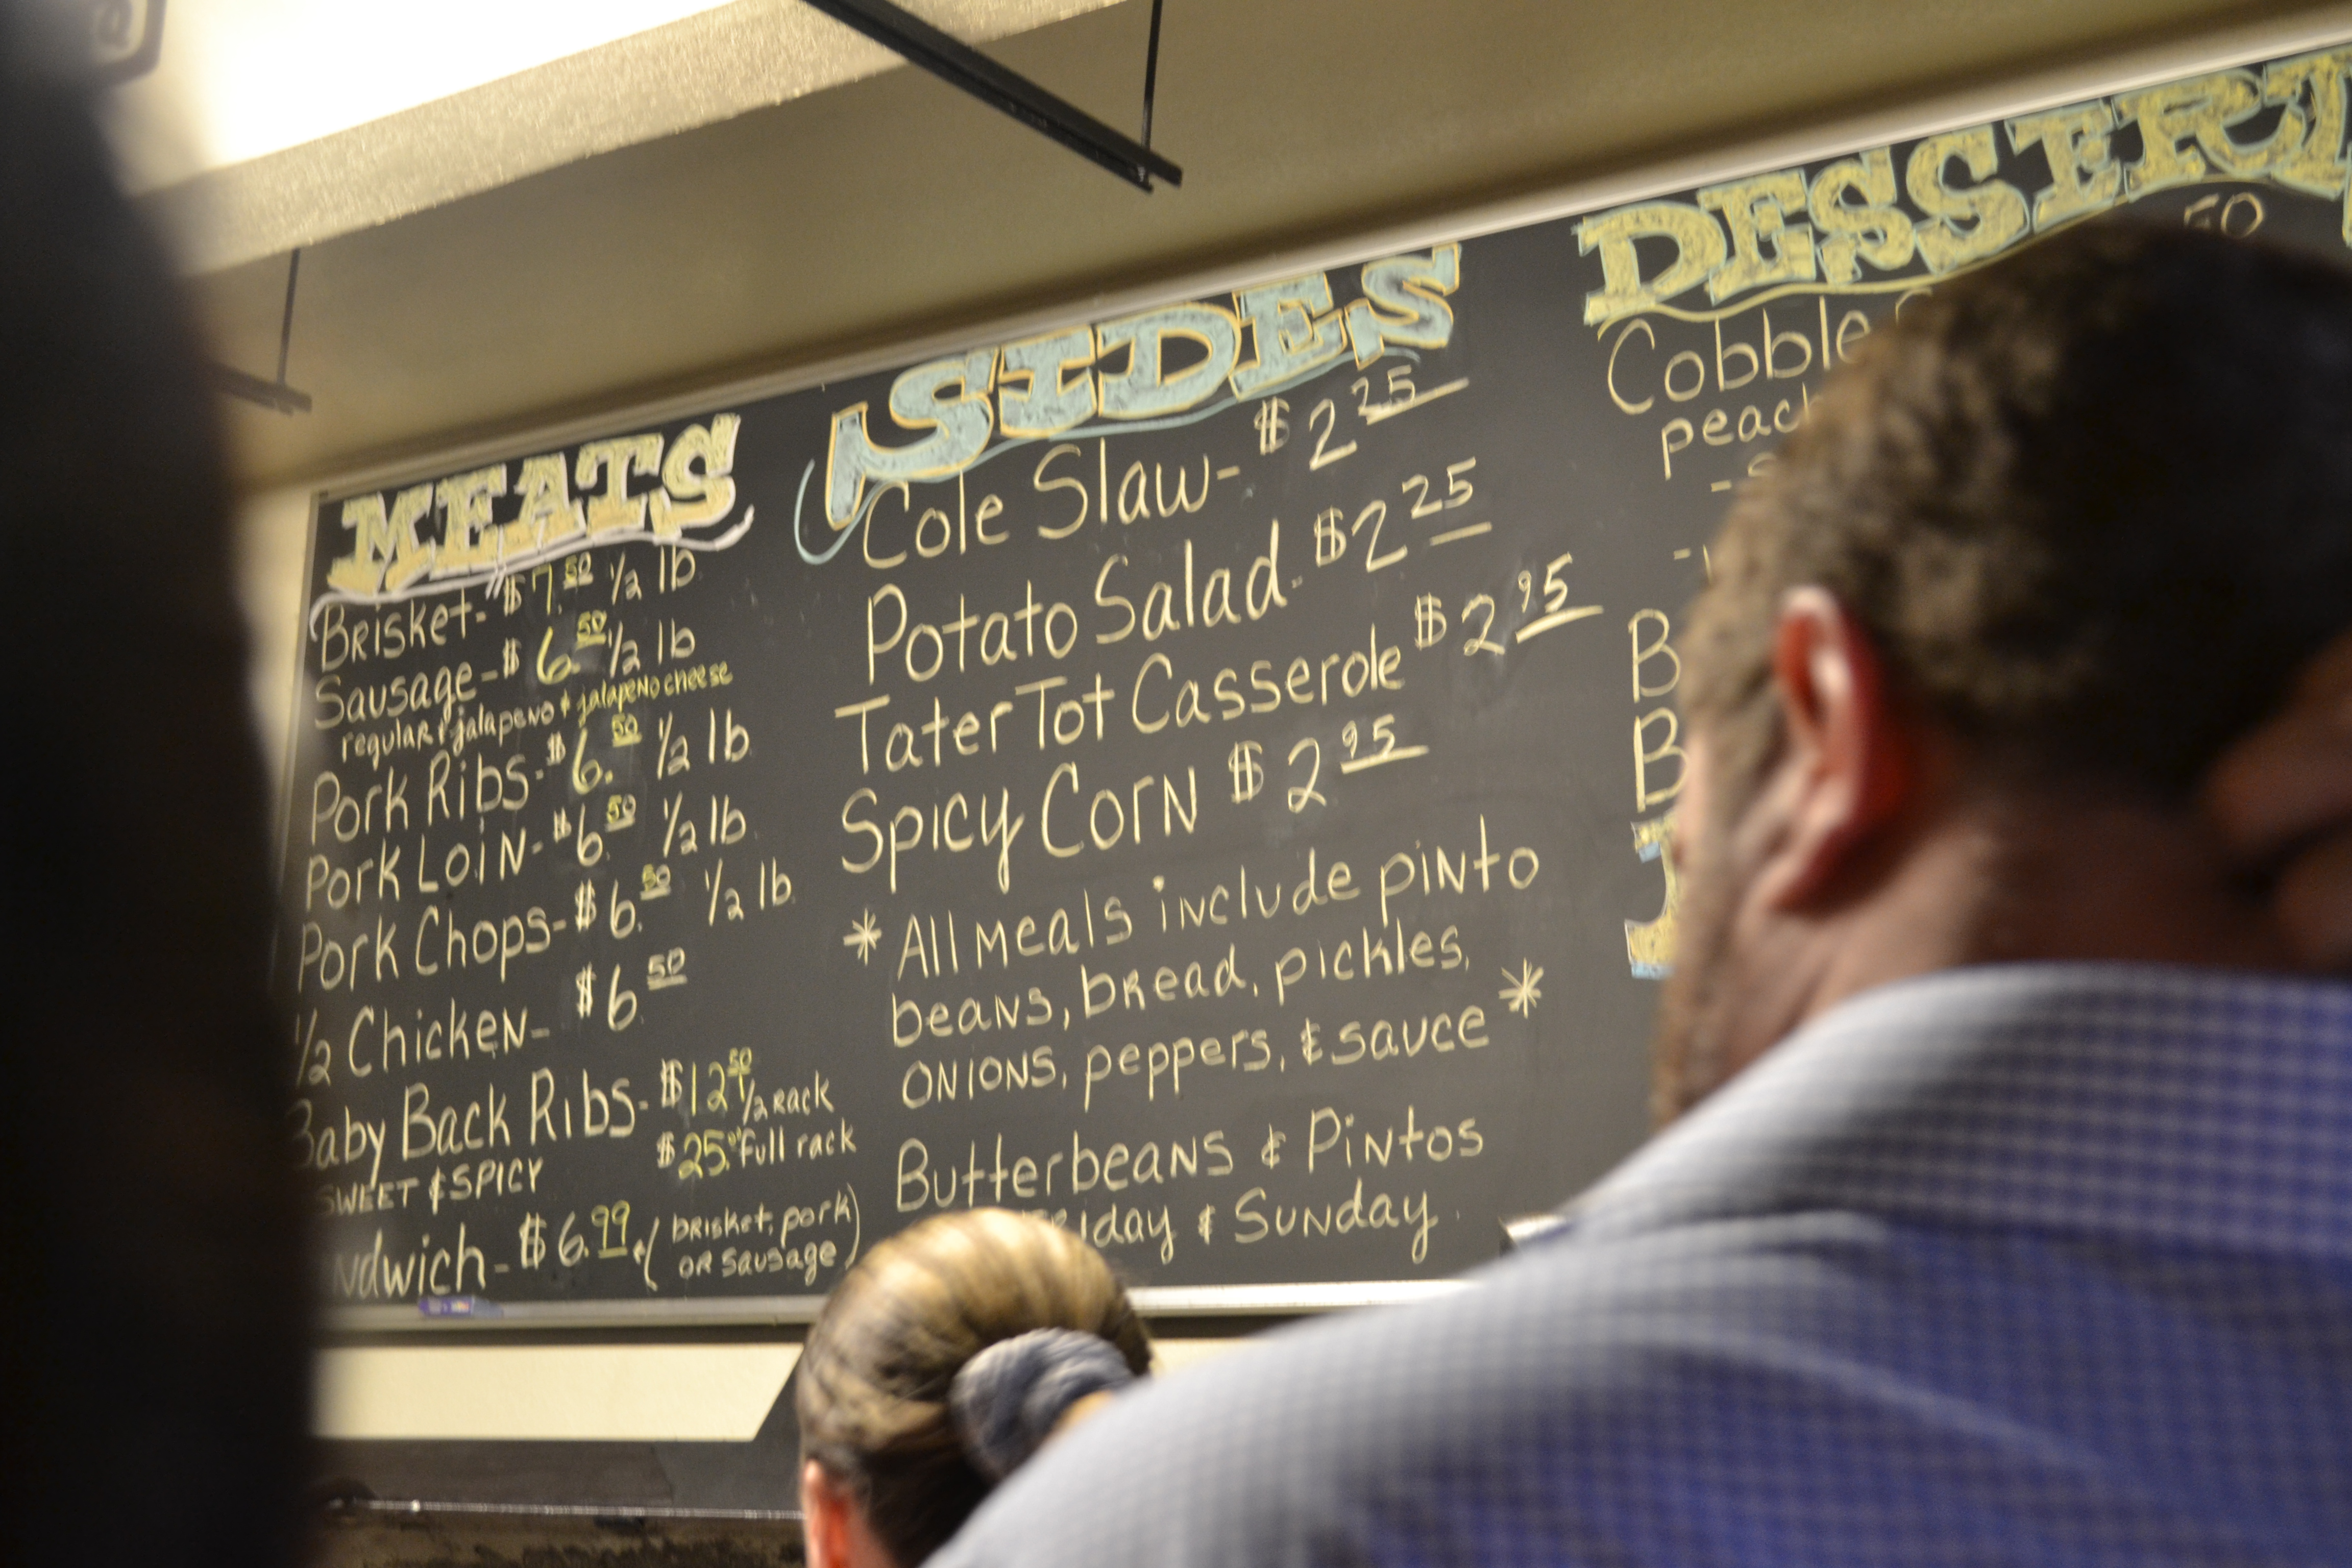 MEATS
Brisket- $7.50 1/2 lb
Sausage- $6.50 1/2 lb
regular & jalapeno & jalapeno cheese
Pork Ribs- $6.50 1/2 lb
Pork Loin- $6.50 1/2 lb
Pork Chops- $6.50 1/2 lb.
1/2 Chicken- $6.50
Baby Back Ribs- $12.50 1/2 rack
SWEET & SPICY $25.00 Full rack
ndwich- $6.99 (brisket, pork
or sausage)
SIDES
Cole Slaw- $2.25
Potato Salad- $2.25
Tater Tot Casserole $2.95
Spicy Corn $2.95
*All meals include pinto
beans, bread, pickles,
onions, peppers, & sauce*
Butterbeans & Pintos
riday & Sunday
DESSERT
50
Cobble
peach
B
B